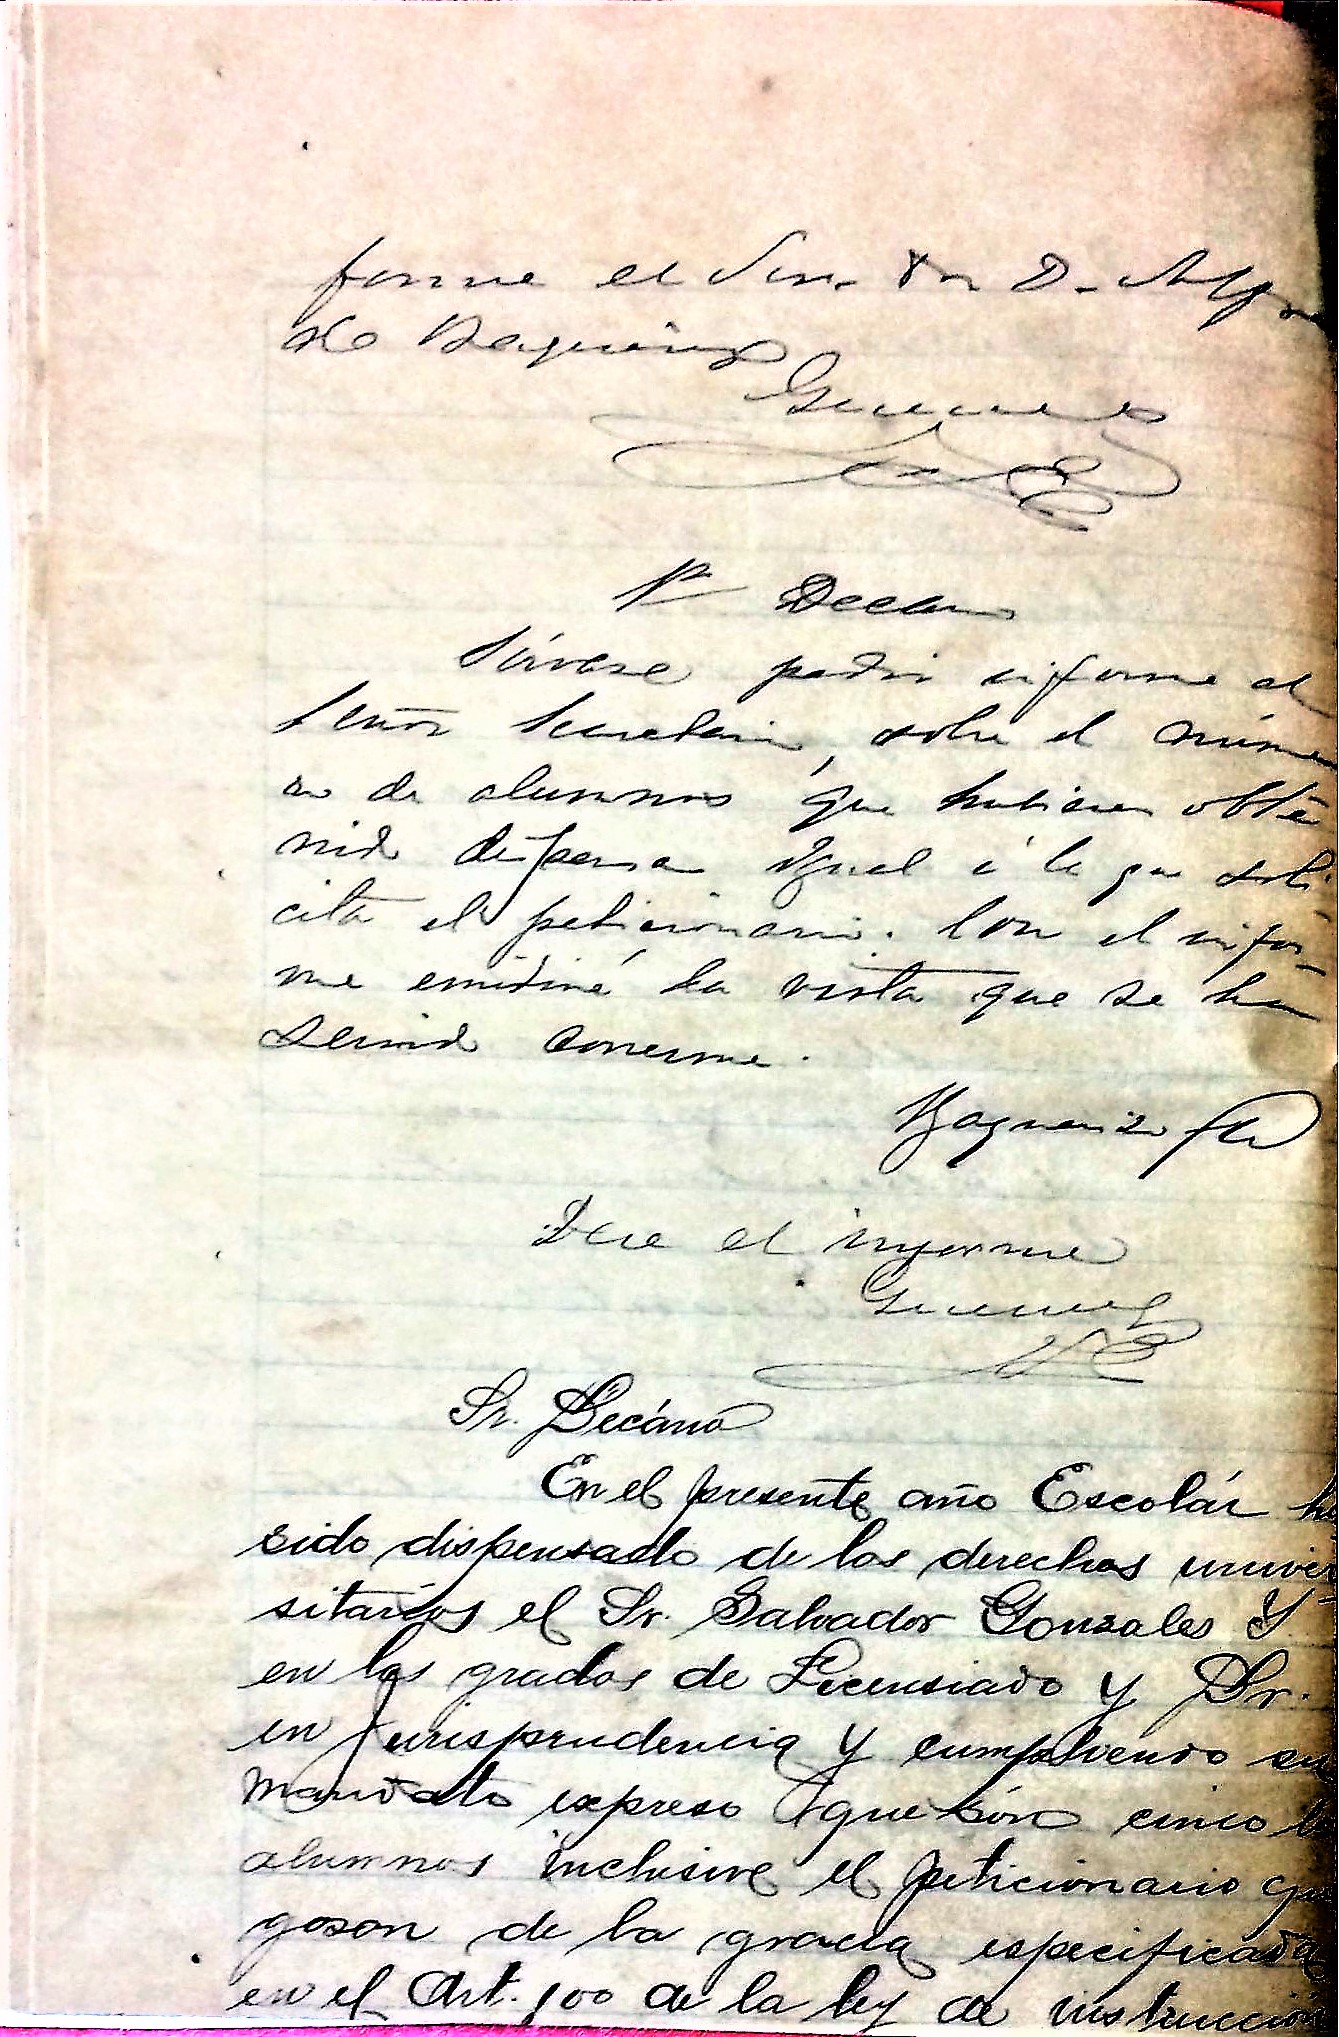 forme el Sor. Dr. D. Alfre
do Baquerizo
Sr Decano
Sírvase pedir informe al
Señor Secretario, sobre el núme
ro de alumnos que hubieren obte
nido dispensa igual á la que soli
cita el peticionario. Con el infor-
me emitiré la vista que se ha
servido correrme.
Baquerizo
Dese el informe
Sr. Decáno
En el presente año Escolár ha
sido dispensado de los derechos univer
sitarios el Sr. Salvador Gonzales Y.
en los grados de Licensiado y Dr.
en Jurisprudencia y cumpliendo su
mandato expreso que són cinco los
alumnos inclusive el peticionario que
gosan de la gracia especificada
en el Art. 100 de la ley de instrucción